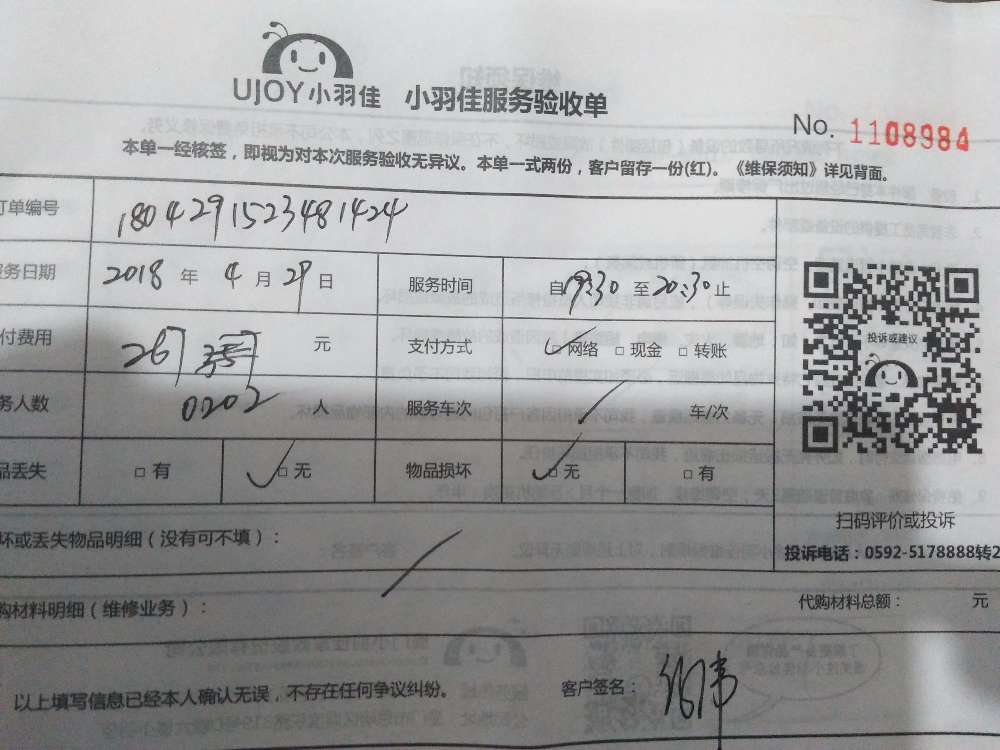 UJOY小羽佳 小羽佳服务验收单
No. 1108984
本单一经核签，即视为对本次服务验收无异议。本单一式两份，客户留存一份(红)。《维保须知》详见背面。
订单编号 1804291523481424
服务日期 2018 年 4 月 29 日 服务时间 自19:30 至20:30止
付费用 元 支付方式 ✓□网络 □现金 □转账
务人数 0202 人 服务车次 / 车/次
品丢失 □有 ✓□无 物品损坏 ✓□无 □有
投诉或建议
扫码评价或投诉
投诉电话：0592-5178888转2
坏或丢失物品明细（没有可不填）： /
购材料明细（维修业务）： 代购材料总额： 元
以上填写信息已经本人确认无误，不存在任何争议纠纷。 客户签名：